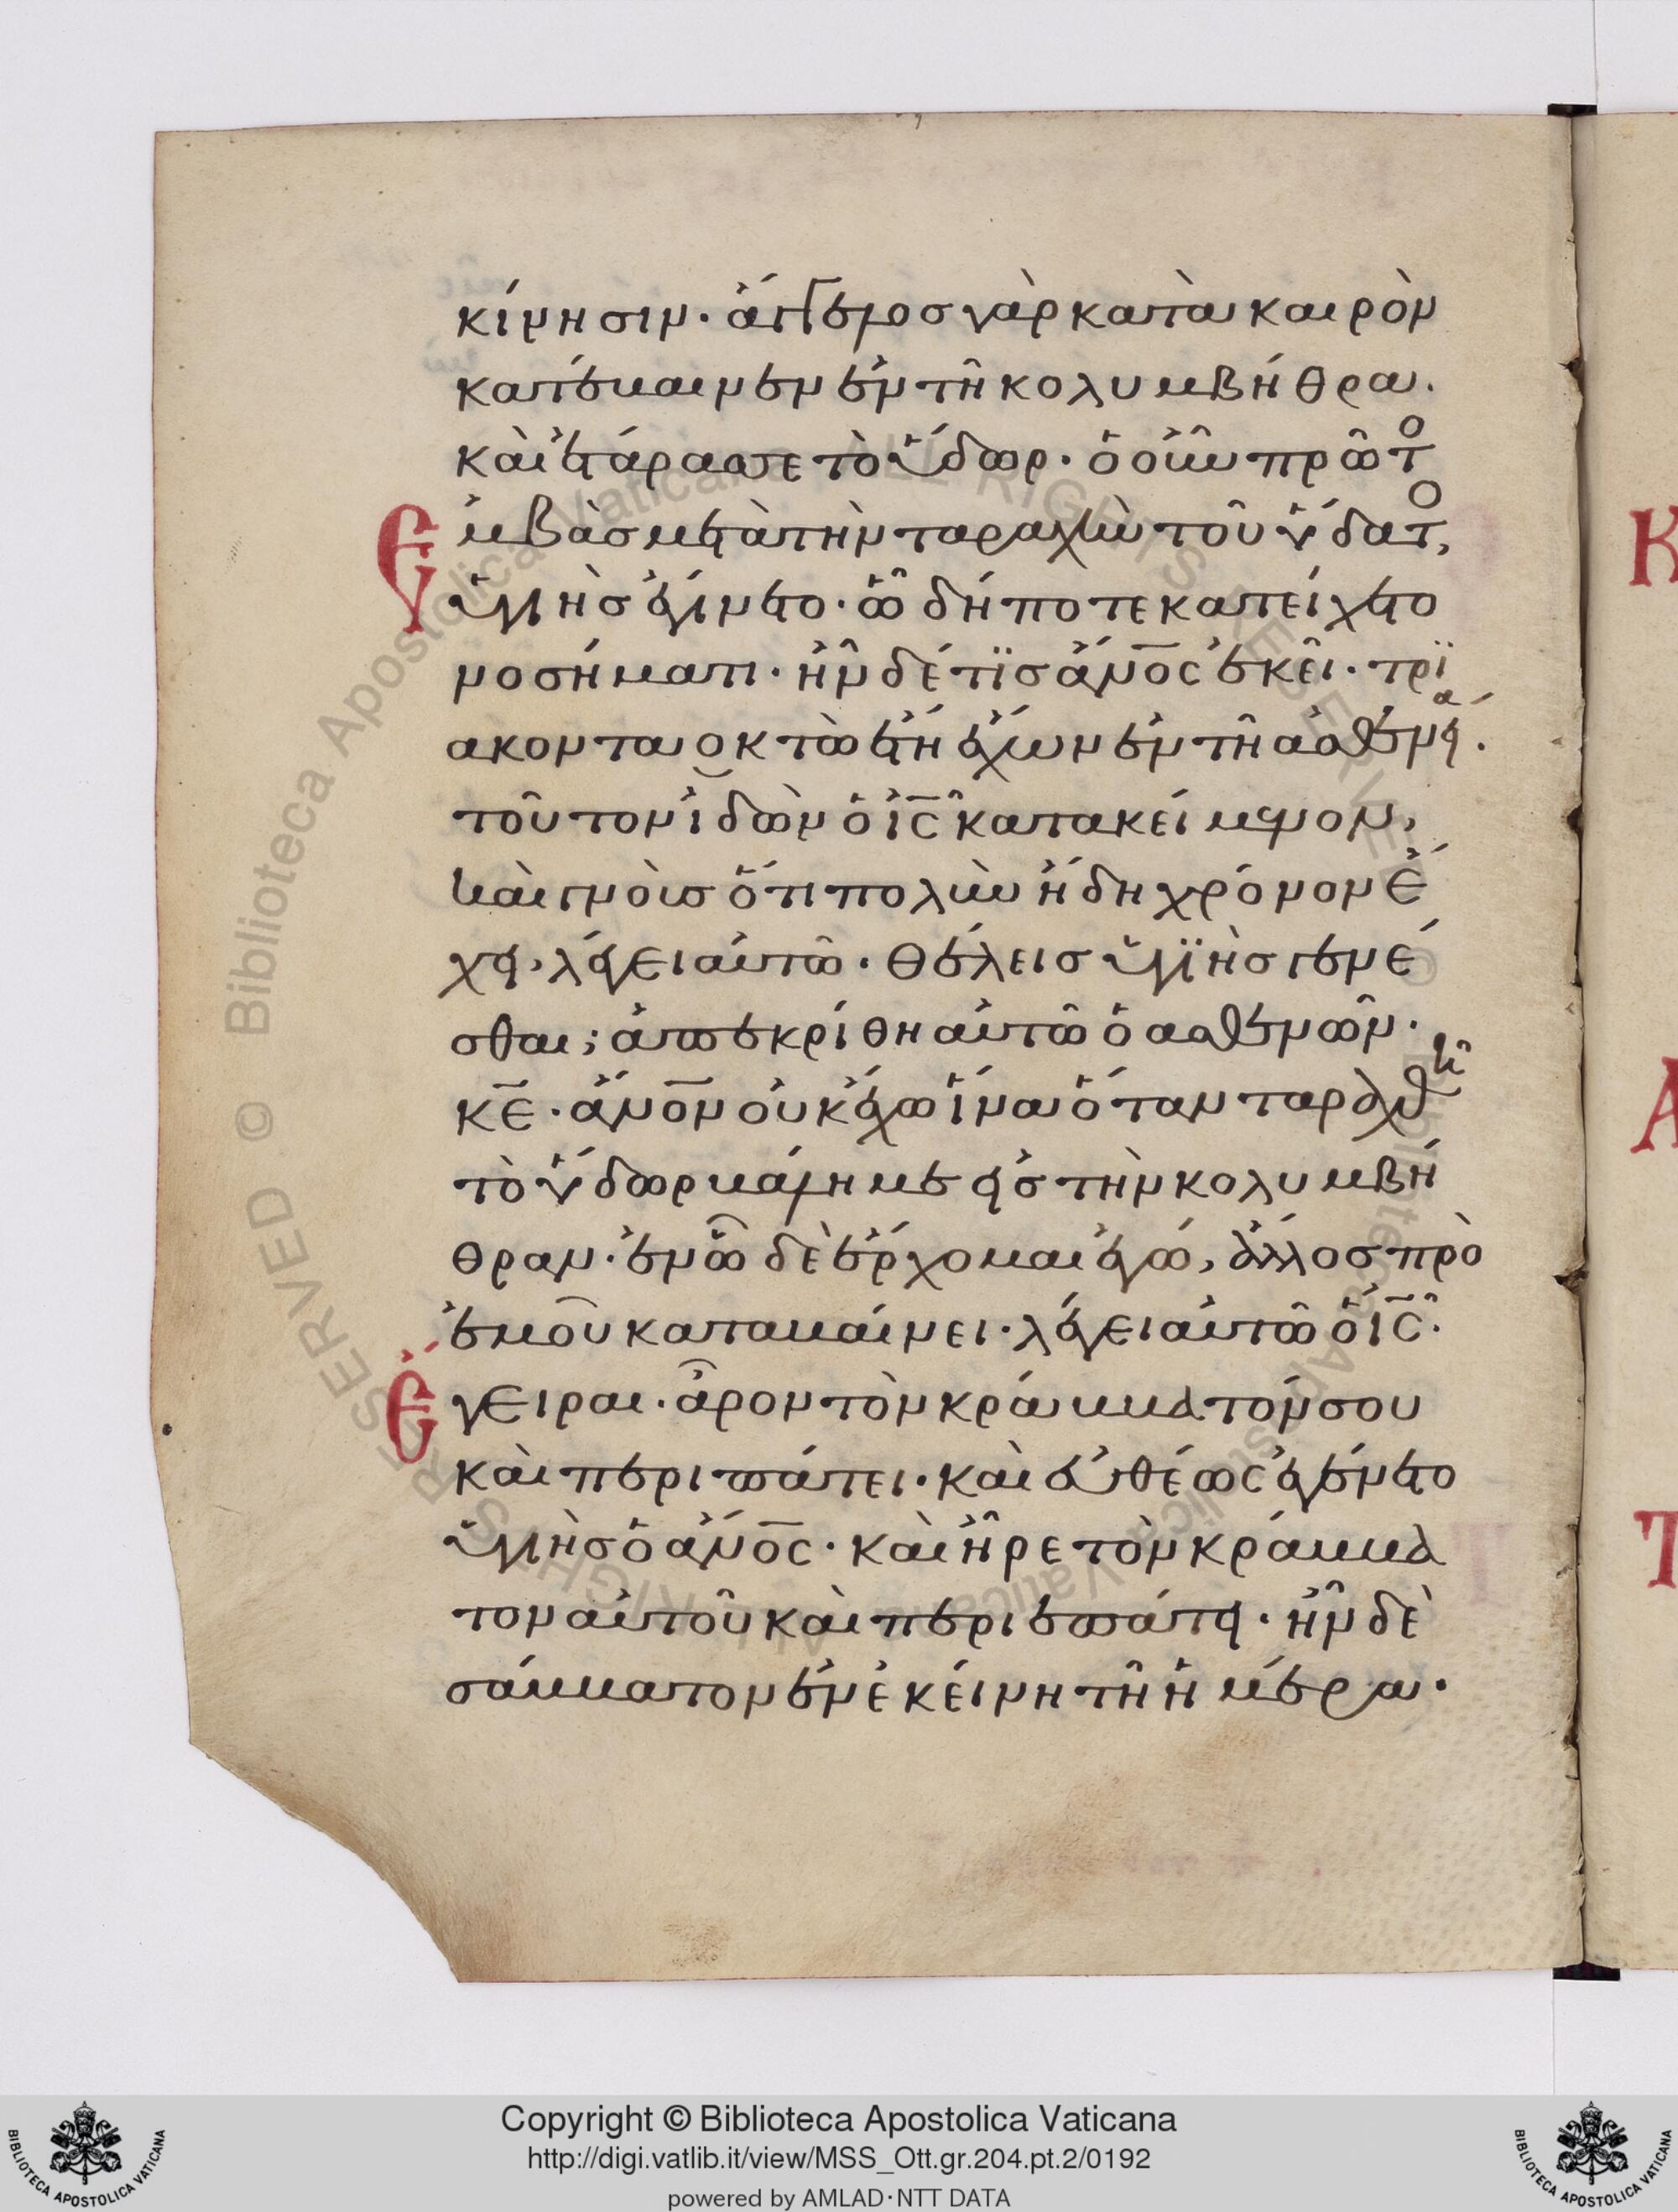 κίνησιν· ἄγγελος γὰρ κατὰ καιρὸν
κατέβαινεν ἐν τῆ κολυμβήθρα.
καὶ ἐτάρασσε τὸ ὕδωρ· ὁ οὖν πρῶτο
Ἐμβὰς μετὰ τὴν ταραχὴν τοῦ ὕδατο,
ὑγιὴς ἐγίνετο· ὧ δήποτε κατείχετο
νοσήματι· ἦν δέ τϊς ἄνος ἐκεῖ· τρϊ
ακονταοκτὼ ἔτη ἔχων ἐν τῆ ἀσθενεία.
τοῦτον ἰδὼν ὁ ις κατακείμενον,
καὶ γνοὺς ὅτι πολὺν ἤδη χρόνον ἔ
χει, λέγει αὐτῶ· θέλεις ὑγϊὴς γενέ
σθαι; ἀπεκρίθη αὐτῶ ὁ ασθενῶν·
κε· ἄνον οὐκ ἔχω ἵνα ὅταν ταραχθῆ
τὸ ὕδωρ βάλη με εἰς τὴν κολυμβή
θραν· ἐν ὧ δὲ ἔρχομαι ἐγώ, ἄλλος πρὸ
ἐμοῦ καταβαίνει· λέγει αὐτῶ ὁ ις·
Ἔγειραι· ἆρον τὸν κράββατόν σου
καὶ περιπάτει· καὶ εὐθέως ἐγένετο
ὑγιὴς ὁ ἄνος· καὶ ἦρε τὸν κράββα
τον αὐτοῦ καὶ περιεπάτει· ἦν δὲ
σάββατον ἐν ἐκείνη τῆ ἡμέρα·
Κ
Α
Τ
© Biblioteca Apostolica Vaticana ALL RIGHTS RESERVED
Copyright © Biblioteca Apostolica Vaticana
http://digi.vatlib.it/view/MSS_Ott.gr.204.pt.2/0192
powered by AMLAD·NTT DATA
BIBLIOTECA APOSTOLICA VATICANA
BIBLIOTECA APOSTOLICA VATICANA